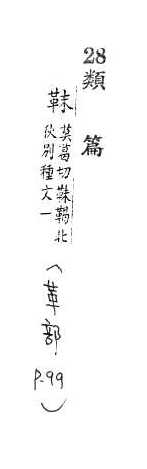 28
類篇
靺 莫葛切靺鞨北
狄別種文一
(革部
P.99)